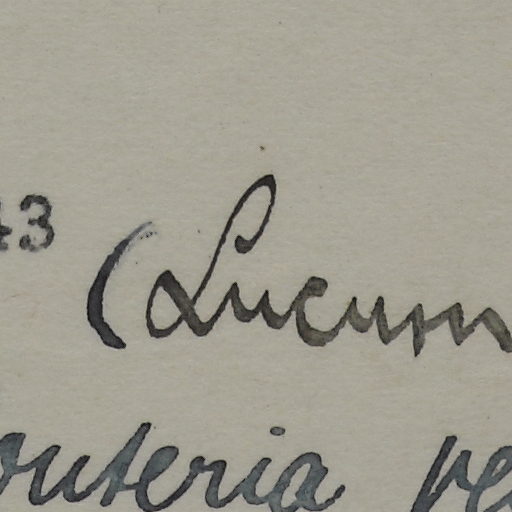 43
(Lucum
outeria pe